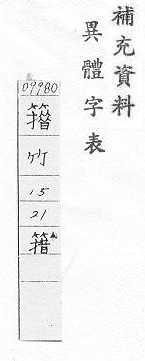 補充資料
異體字表
09980
竹
15
21
籍▲